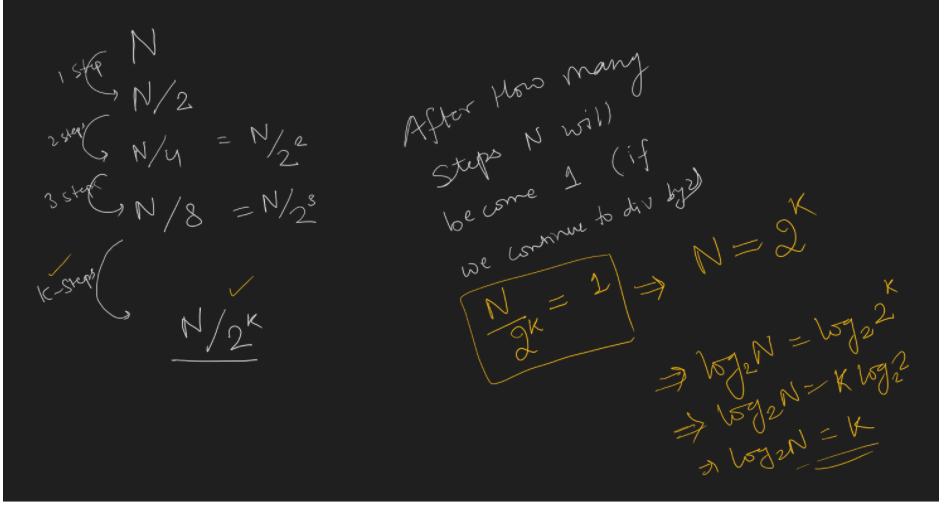 N
1 step
N/2
2 steps
N/4 = N/2²
3 steps
N/8 = N/2³
K-steps
N/2ᴷ
After How many
steps N will
become 1 (if
we continue to div by 2)
N/2ᴷ = 1 ⇒ N = 2ᴷ
⇒ log₂N = log₂2ᴷ
⇒ log₂N = K log₂2
⇒ log₂N = K